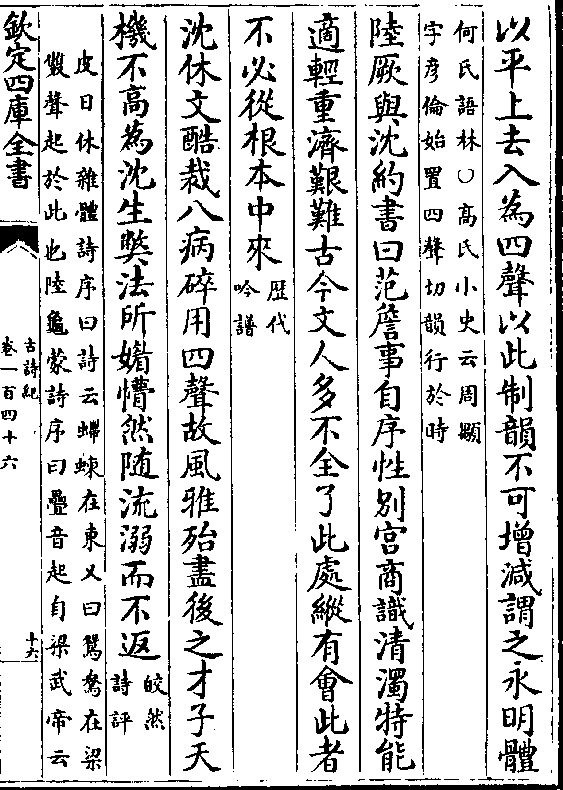 以平上去入為四聲以此制韻不可増減謂之永明體
何氏語林○髙氏小史云周顒
字彦倫始置四聲切韻行於時
陸厥與沈約書曰范詹事自序性别宫商識清濁特能
適輕重濟艱難古今文人多不全了此處縱有會此者
不必從根本中來
歴代
吟譜
沈休文酷裁八病碎用四聲故風雅殆盡後之才子天
機不髙為沈生獘法所媚懵然随流溺而不返
皎然
詩評
皮日休雜體詩序曰詩云螮蝀在東又曰鴛鴦在梁
雙聲起於此也陸龜蒙詩序曰疊音起自梁武帝云
欽定四庫全書
古詩紀
卷一百四十六
十六